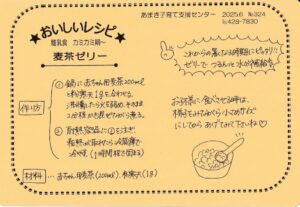 あまき子育て支援センター 2025.6 No324
℡428-7830
おいしいレシピ
離乳食 カミカミ期〜
麦茶ゼリー
作り方
① 鍋に赤ちゃん用麦茶200mlと
粉寒天1gを合わせる。
沸騰したら火を弱め、そのまま
2分程かき混ぜながら煮る。
② 耐熱容器に①を注ぎ、
粗熱が取れたら冷蔵庫で
冷やす。(1時間程で固まる)
材料… 赤ちゃん用麦茶(200ml) 粉寒天(1g)
これからの暑くなる時期にピッタリ!!
ゼリーで つるんと 水分補給を
お子様に食べさせる時は、
様子をみてなめらか 小さめサイズ
にしてから あげてみて下さいね♡